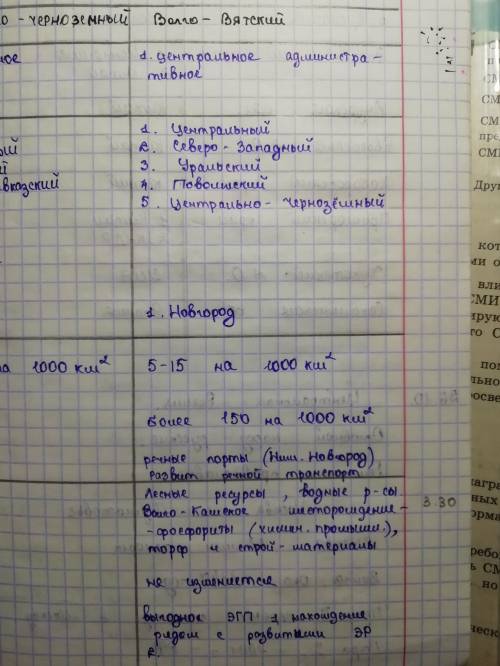 о - черноземный Волго - Вятский
ное 1. центральное администра -
тивное
1. Центральный
ный 2. Северо - Западный
ий 3. Уральский
авказский 4. Поволжский
5. Центрально - Чернозёмный
1. Новгород
на 1000 км² 5-15 на 1000 км²
более 150 на 1000 км²
речные порты (Ниж. Новгород)
развит речной транспорт
Лесные ресурсы, водные р-сы.
месторождение -
- фосфориты (химич. промышл.),
торф и строй - материалы
не изменяется
выгодное ЭГП 1 нахождение
рядом с развитыми ЭР
2.
3.30
СМИ
СМ
СМ
пред
СМИ
Друг
кот
ми о
вли
СМИ
ирую
то С
пом
льно
росве
награ
ных
орма
ребо
ь СМ
но
ческ